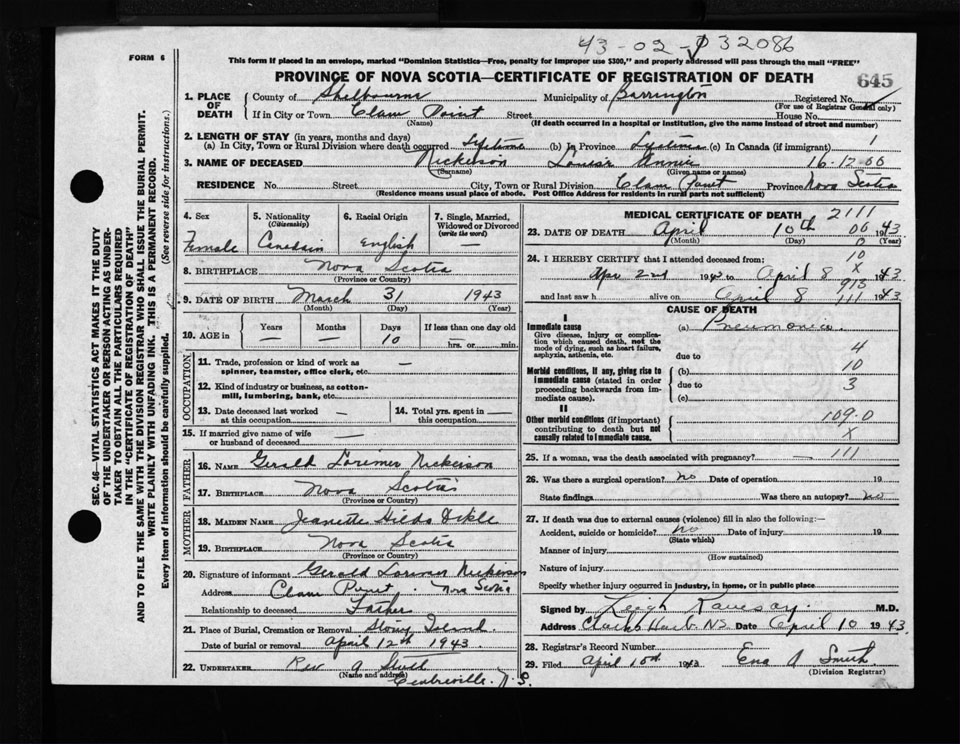 43-02-032086
FORM 6
This form if placed in an envelope, marked "Dominion Statistics—Free, penalty for improper use $300," and properly addressed will pass through the mail "FREE"
PROVINCE OF NOVA SCOTIA—CERTIFICATE OF REGISTRATION OF DEATH
645
1. PLACE OF DEATH
County of Shelburne Municipality of Barrington Registered No.
(For use of Registrar General only)
If in City or Town Clam Point Street House No.
(Name) (If death occurred in a hospital or institution, give the name instead of street and number)
2. LENGTH OF STAY (in years, months and days)
(a) In City, Town or Rural Division where death occurred Lifetime (b) In Province Lifetime (c) In Canada (if immigrant) 1
3. NAME OF DECEASED Nickerson Louise Annie 16-12-00
(Surname) (Given name or names)
RESIDENCE No. Street City, Town or Rural Division Clam Point Province Nova Scotia
(Residence means usual place of abode. Post Office Address for residents in rural parts not sufficient)
4. Sex Female
5. Nationality (Citizenship) Canadain
6. Racial Origin English
7. Single, Married, Widowed or Divorced (write the word) —
8. BIRTHPLACE Nova Scotia
(Province or Country)
9. DATE OF BIRTH March 31 1943
(Month) (Day) (Year)
10. AGE in Years — Months — Days 10 If less than one day old hrs. or min.
OCCUPATION
11. Trade, profession or kind of work as spinner, teamster, office clerk, etc. —
12. Kind of industry or business, as cotton-mill, lumbering, bank, etc.
13. Date deceased last worked at this occupation —
14. Total yrs. spent in this occupation —
15. If married give name of wife or husband of deceased —
FATHER
16. NAME Gerald Lorimer Nickerson
17. BIRTHPLACE Nova Scotia
(Province or Country)
MOTHER
18. MAIDEN NAME Jeanette Hilda
19. BIRTHPLACE Nova Scotia
(Province or Country)
20. Signature of informant Gerald Lorimer Nickerson
Address Clam Point. Nova Scotia
Relationship to deceased Father
21. Place of Burial, Cremation or Removal Stoney Island.
Date of burial or removal April 12th 1943.
22. UNDERTAKER Rev A
(Name and address) Centreville, N.S.
MEDICAL CERTIFICATE OF DEATH 2111
23. DATE OF DEATH April 10th 06 1943
(Month) (Day) 0 (Year)
24. I HEREBY CERTIFY that I attended deceased from: 10
X
Apr 2nd 1943 to April 8 1943
918
and last saw h alive on April 8 111 1943
CAUSE OF DEATH
I
Immediate cause
Give disease, injury or complication which caused death, not the mode of dying, such as heart failure, asphyxia, asthenia, etc.
(a) Pneumonia.
due to 4
Morbid conditions, if any, giving rise to immediate cause (stated in order proceeding backwards from immediate cause).
(b) 10
due to 3
(c)
II
Other morbid conditions (if important) contributing to death but not causally related to immediate cause.
109.0
X
25. If a woman, was the death associated with pregnancy? — 111
26. Was there a surgical operation? No Date of operation 19
State findings Was there an autopsy? No
27. If death was due to external causes (violence) fill in also the following:—
Accident, suicide or homicide? No Date of injury 19
(State which)
Manner of injury
(How sustained)
Nature of injury
Specify whether injury occurred in industry, in home, or in public place
Signed by M.D.
Address Clark's Harb. N.S. Date April 10 1943
28. Registrar's Record Number
29. Filed April 10th 1943 Ena A Smith
(Division Registrar)
SEC. 46—VITAL STATISTICS ACT MAKES IT THE DUTY
OF THE UNDERTAKER OR PERSON ACTING AS UNDERTAKER
TO OBTAIN ALL THE PARTICULARS REQUIRED
IN THE "CERTIFICATE OF REGISTRATION OF DEATH"
AND TO FILE THE SAME WITH THE DIVISION REGISTRAR WHO SHALL ISSUE THE BURIAL PERMIT.
WRITE PLAINLY WITH UNFADING INK. THIS IS A PERMANENT RECORD.
Every item of information should be carefully supplied. (See reverse side for instructions.)